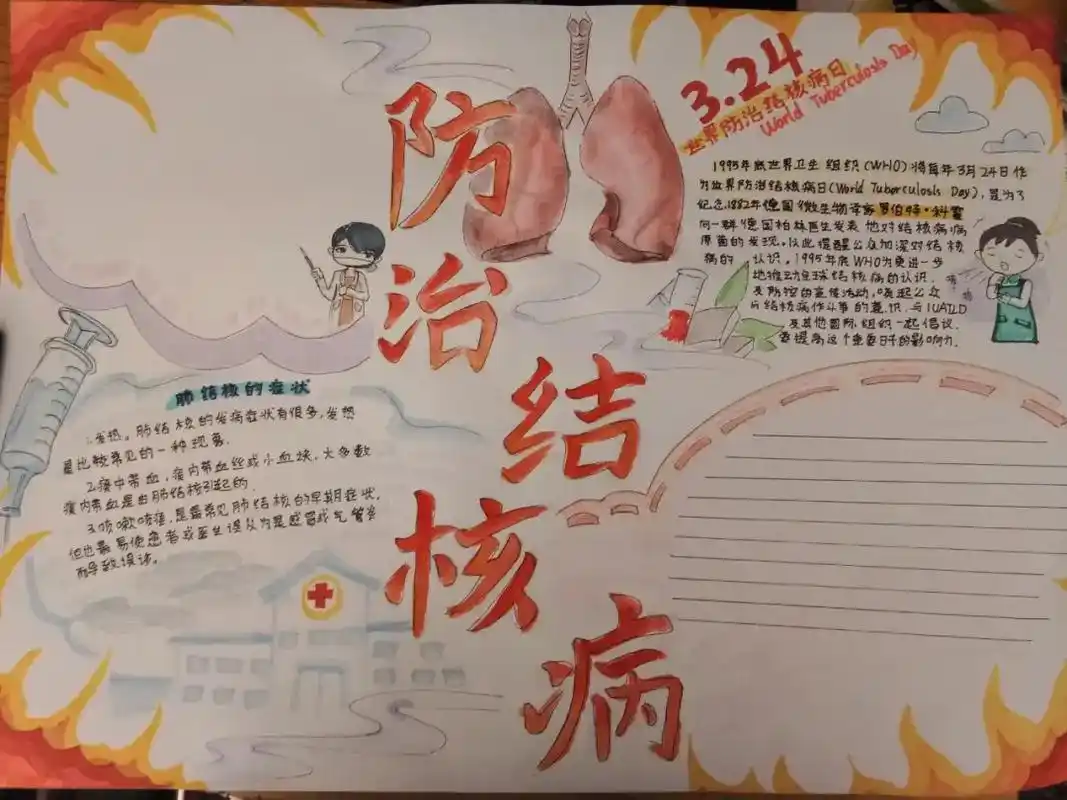 防治结核病
3.24
世界防治结核病日
World Tuberculosis Day
1995年底世界卫生组织(WHO)将每年3月24日作
为世界防治结核病日(World Tuberculosis Day),是为了
纪念1882年德国微生物学家罗伯特·科霍
向一群德国柏林医生发表他对结核病病
原菌的发现,以此提醒公众加深对结核
病的认识。1995年底WHO为更进一步
地推动全球结核病的认识.
及防控的宣传活动,唤起公众
与结核病作斗争的意识,与IUATLD
及其他国际组织一起倡议.
要提高这个重要日子的影响力.
咳
咳
肺结核的症状
1.发热。肺结核的发病症状有很多,发热
是比较常见的一种现象.
2.痰中带血,痰内带血丝或小血块,大多数
痰内带血是由肺结核引起的.
3.咳嗽咳痰,是最常见肺结核的早期症状,
但也最易使患者或医生误认为是感冒或气管炎
而导致误诊。